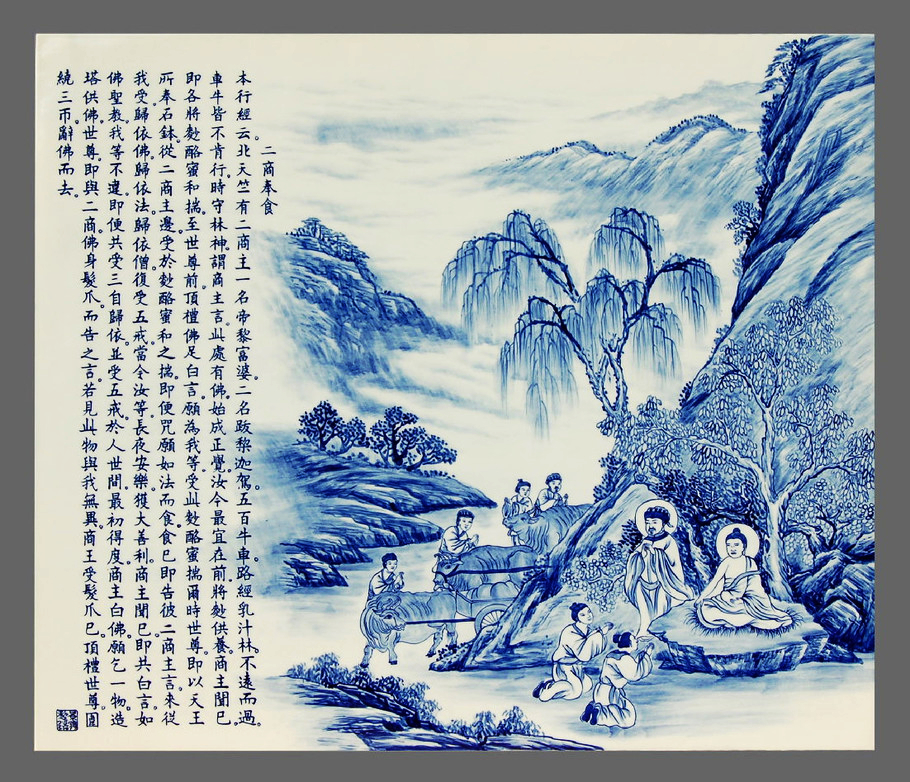 二商奉食
本行經云。北天竺有二商主一名帝黎富婆。二名跋梨迦駕。五百牛車。路經乳汁林。不遠而過。
車牛皆不肯行。時守林神。謂商主言。此處有佛。始成正覺。汝今最宜在前。將麨供養。商主聞已。
即各將麨酪蜜和揣。至世尊前。頂禮佛足。白言。願為我等。受此麨酪蜜揣。爾時世尊。即以天王
所奉石鉢。從二商主邊。受於麨酪蜜和之揣。即便咒願。如法而食。食已。即告彼二商主言。來從
我受歸依佛。歸依法。歸依僧。復受五戒。當令汝等。長夜安樂。獲大善利。商主聞已。即共白言。如
佛聖教。我等不違。即便共受三自歸依。並受五戒。於人世間。最初得度。商主白佛。願乞一物。造
塔供佛。世尊即與二商。佛身髮爪。而告之言。若見此物。與我無異。商王受髮爪已。頂禮世尊。圓
繞三帀。辭佛而去。